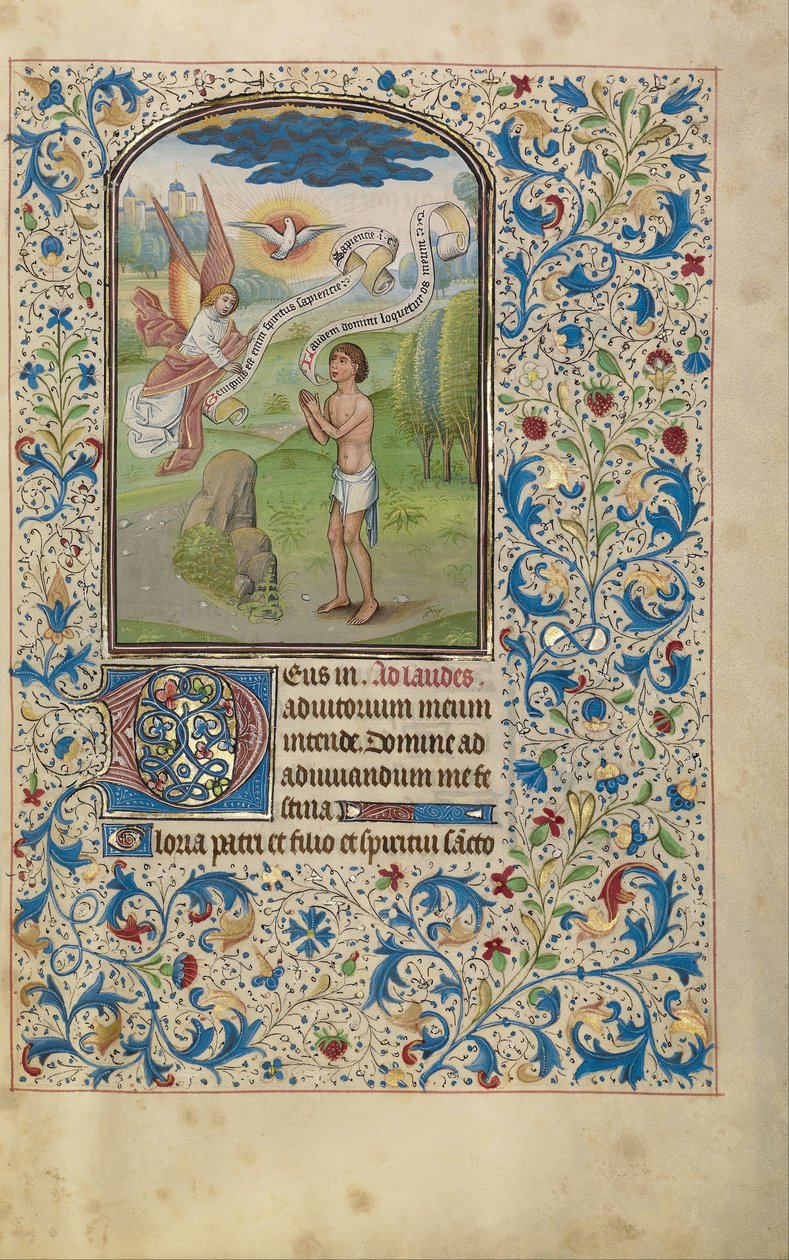 Benignus est enim spiritus sapientie
Sapiencie .i. cº
Laudem domini loquetur os meum
Eus in. Ad laudes.
adiutorium meum
intende. Domine ad
adiuuandum me fe
stina.
Gloria patri et filio et spiritui sc̄to